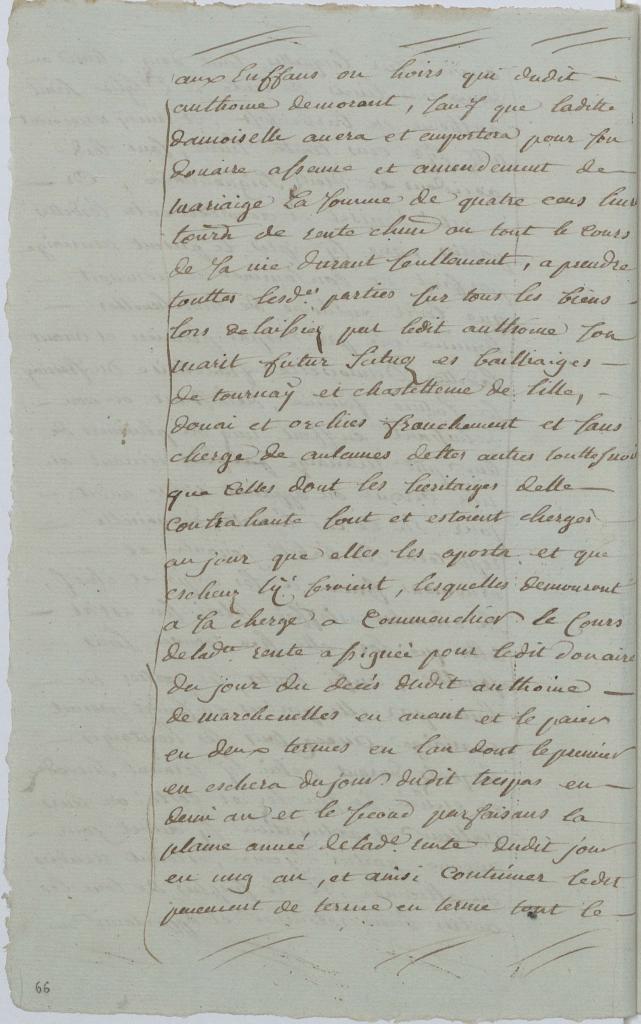 aux Enffans ou hoirs qui dudit —
anthoine demorant, sauf que laditte
damoiselle auera et emportera pour son
douaire assenne et amendement de
mariaige La somme de quatre cens liur
tourn de rente chun an tout le cours
de sa vie durant seullement, a prendre
touttes lesd.es parties sur tous les biens -
lors delaissiez par ledit anthoine son
marit futur scituez es bailliaiges —
de tournaÿ et chastellenie de lille, -
douai et orchies franchement et sans
cherge de aulcunes debtes autres
que Celles dont les heritaiges delle —
contrahante sont et estoient chergés
au jour que elles les aporta et que
escheuz lÿ seroient, lesquelles demouront
a sa cherge a Commenchier le Cours
delad.tte rente assignée pour ledit douaire
du jour du decés dudit anthoine —
de marchenelles en auant et le paier
en deux termes en lan dont le premier
en eschera du jour dudit trespas en —
demi an et le second parfaisans la
plaine année delad.e rente dudit jour
en ung an, et ainsi Continuer ledit
paiement de terme en terme tout le —
66